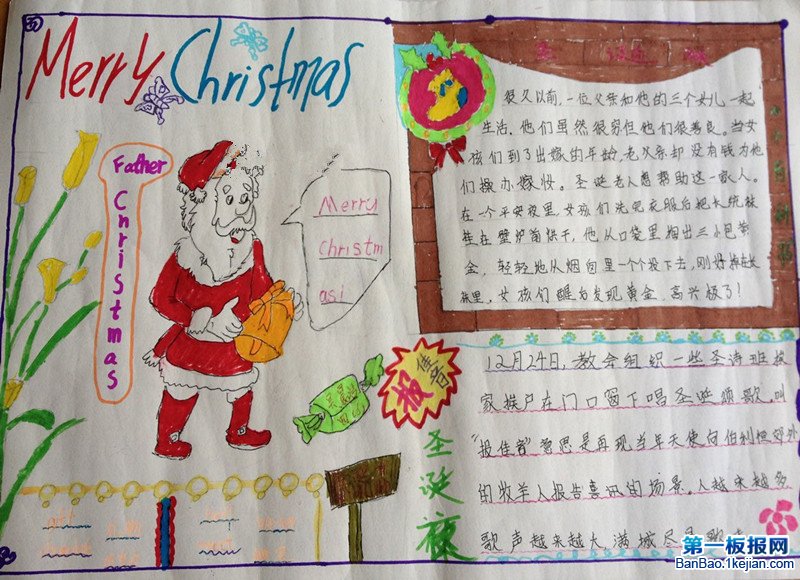 Merry Christmas
Father
Christmas
Merry
christm
as!
很久以前,一位父亲和他的三个女儿一起
生活,他们虽然很穷但他们很善良。当女
孩们到了出嫁的年龄,老父亲却没有钱为他
们操办嫁妆。圣诞老人想帮助这一家人。
在一个平安夜里,女孩们洗完衣服后把长统袜
挂在壁炉前烘干,他从口袋里掏出三小包黄
金,轻轻地从烟囱里一个个投下去,刚好掉在长
袜里,女孩们醒后发现黄金,高兴极了!
报佳音
圣诞
12月24日,教会组织一些圣诗班挨
家挨户在门口窗下唱圣诞颂歌,叫
"报佳音"意思是再现当年天使向伯利恒郊外
的牧羊人报告喜讯的场景。人越来越多
歌声越来越大,满城尽是歌声
第一板报网
BanBao.1kejian.com